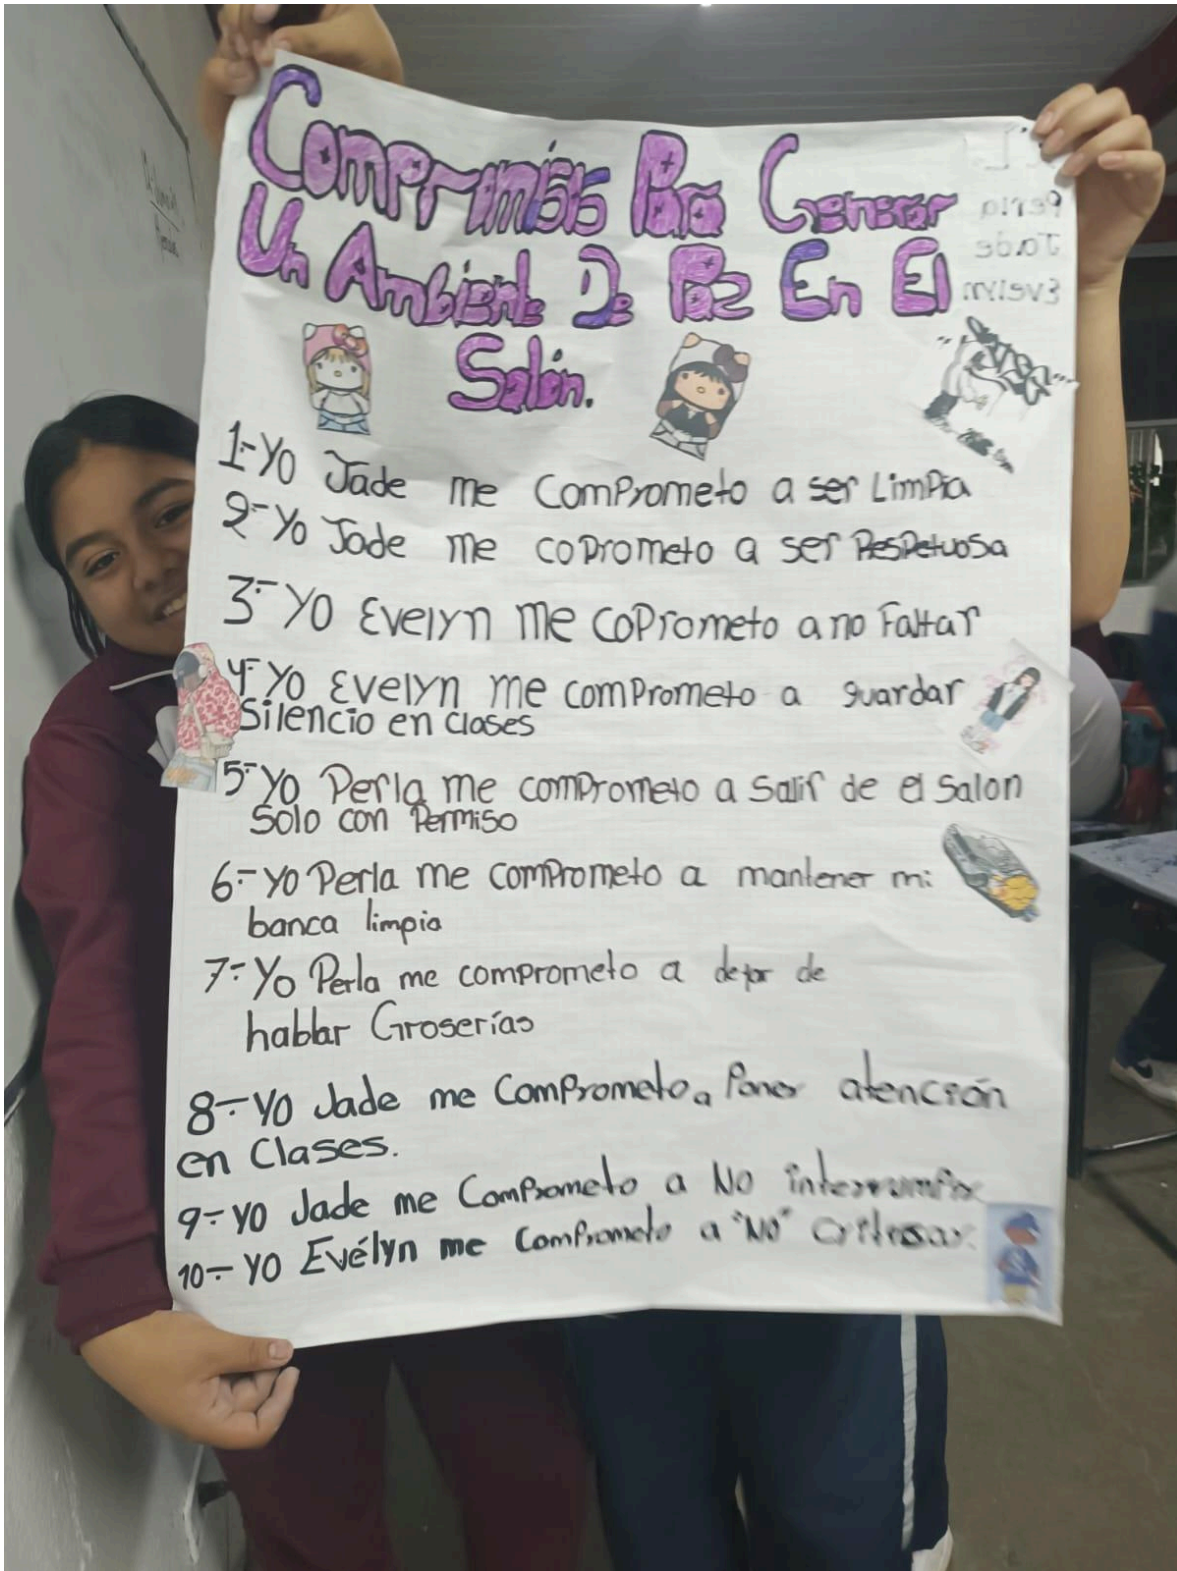 Compromisos Para Generar
Un Ambiente De Paz En El
Salón.
Perla
Jade
Evelyn
1.- Yo Jade me comprometo a ser Limpia
2.- Yo Jade me coprometo a ser Respetuosa
3.- Yo Evelyn me coprometo a no Faltar
4.- Yo Evelyn me comprometo a guardar
Silencio en clases
5.- Yo Perla me comprometo a Salir de el Salon
Solo con Permiso
6.- Yo Perla me comprometo a mantener mi
banca limpia
7.- Yo Perla me comprometo a dejar de
hablar Groserías
8.- Yo Jade me Comprometo a Poner atención
en Clases.
9.- Yo Jade me Comprometo a No interrumpir
10.- Yo Evélyn me Comprometo a "No" Criticar.